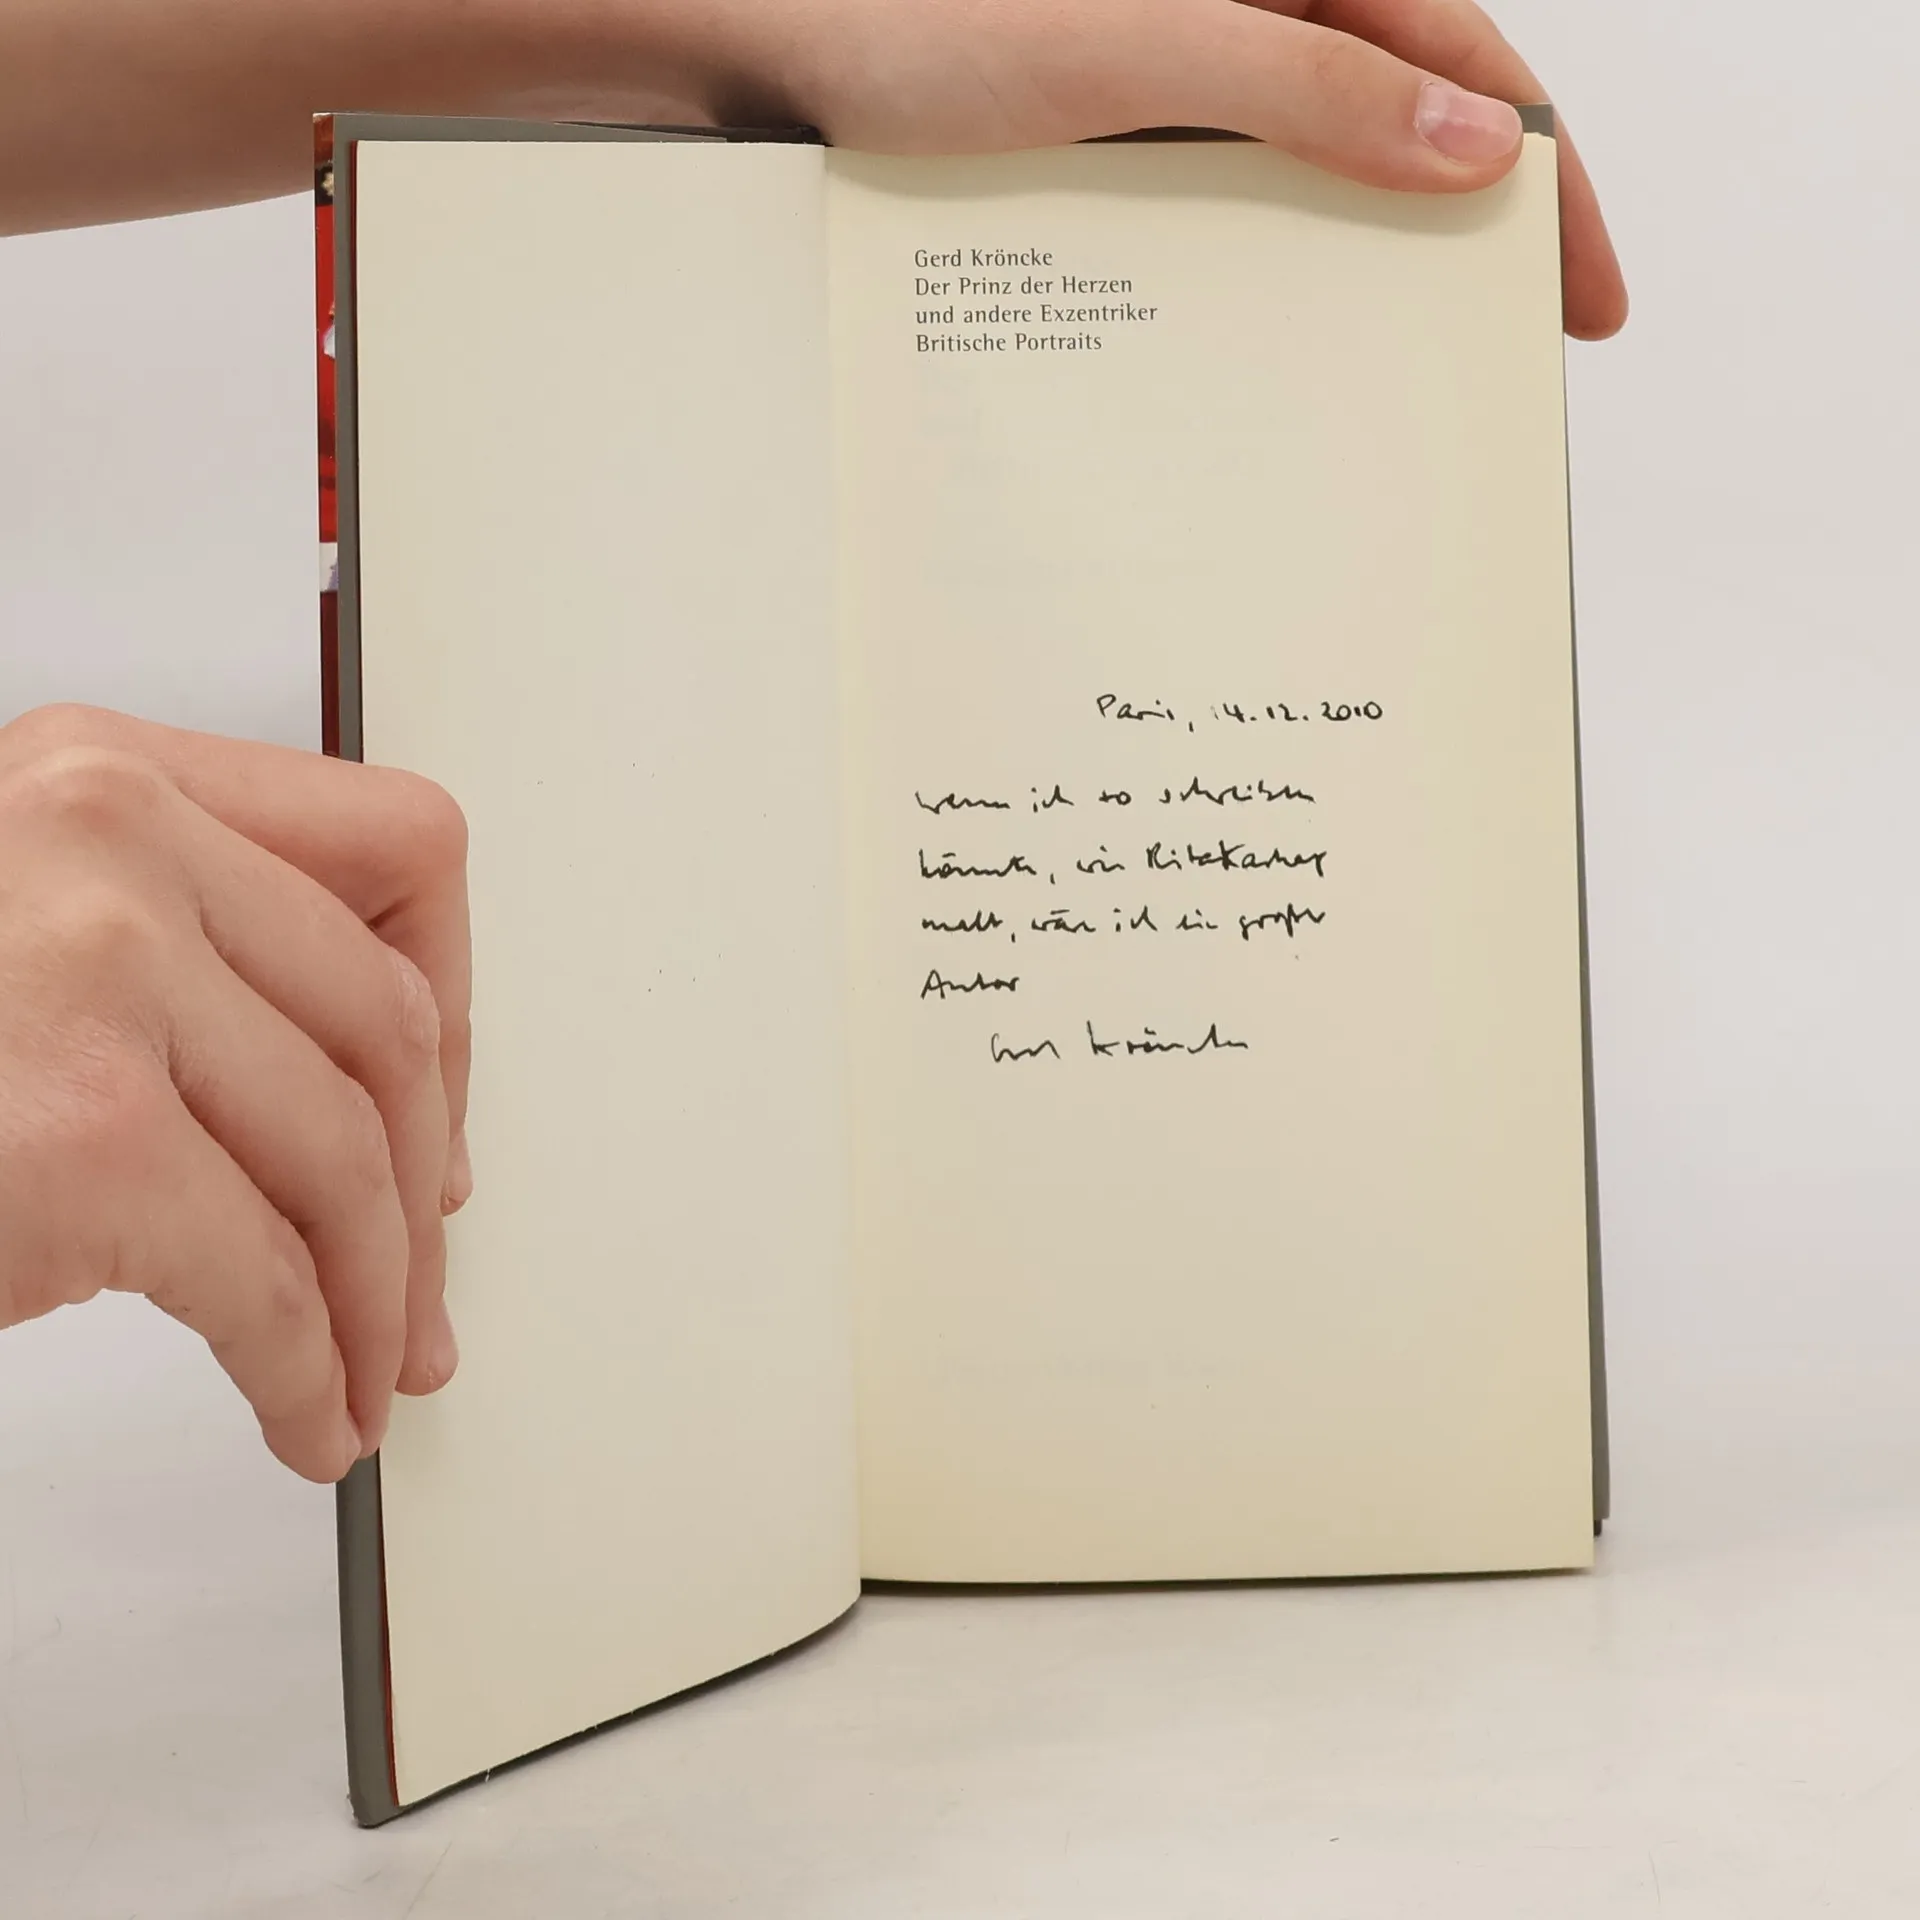 Gerd Kröncke
Der Prinz der Herzen
und andere Exzentriker
Britische Portraits
Paris, 14.12.2010
wenn ich so schreiben
könnte, wie
malt, wär ich ein großer
Autor
Gerd Kröncke